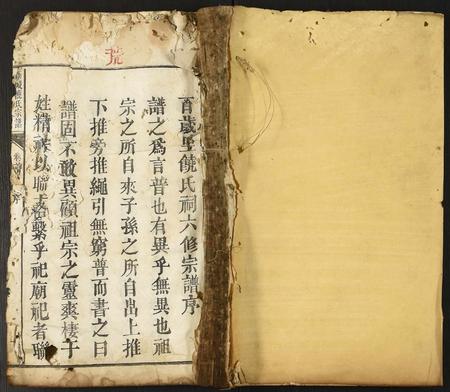 百歲里饒氏祠六修宗譜序
譜之爲言普也有異乎無異也祖
宗之所自來子孫之所自出上推
下推旁推繩引無窮普而書之曰
譜固不敢異顧祖宗之靈爽棲于
姓精誠以聯丕繫乎祀廟祀者聯
氏宗譜
序